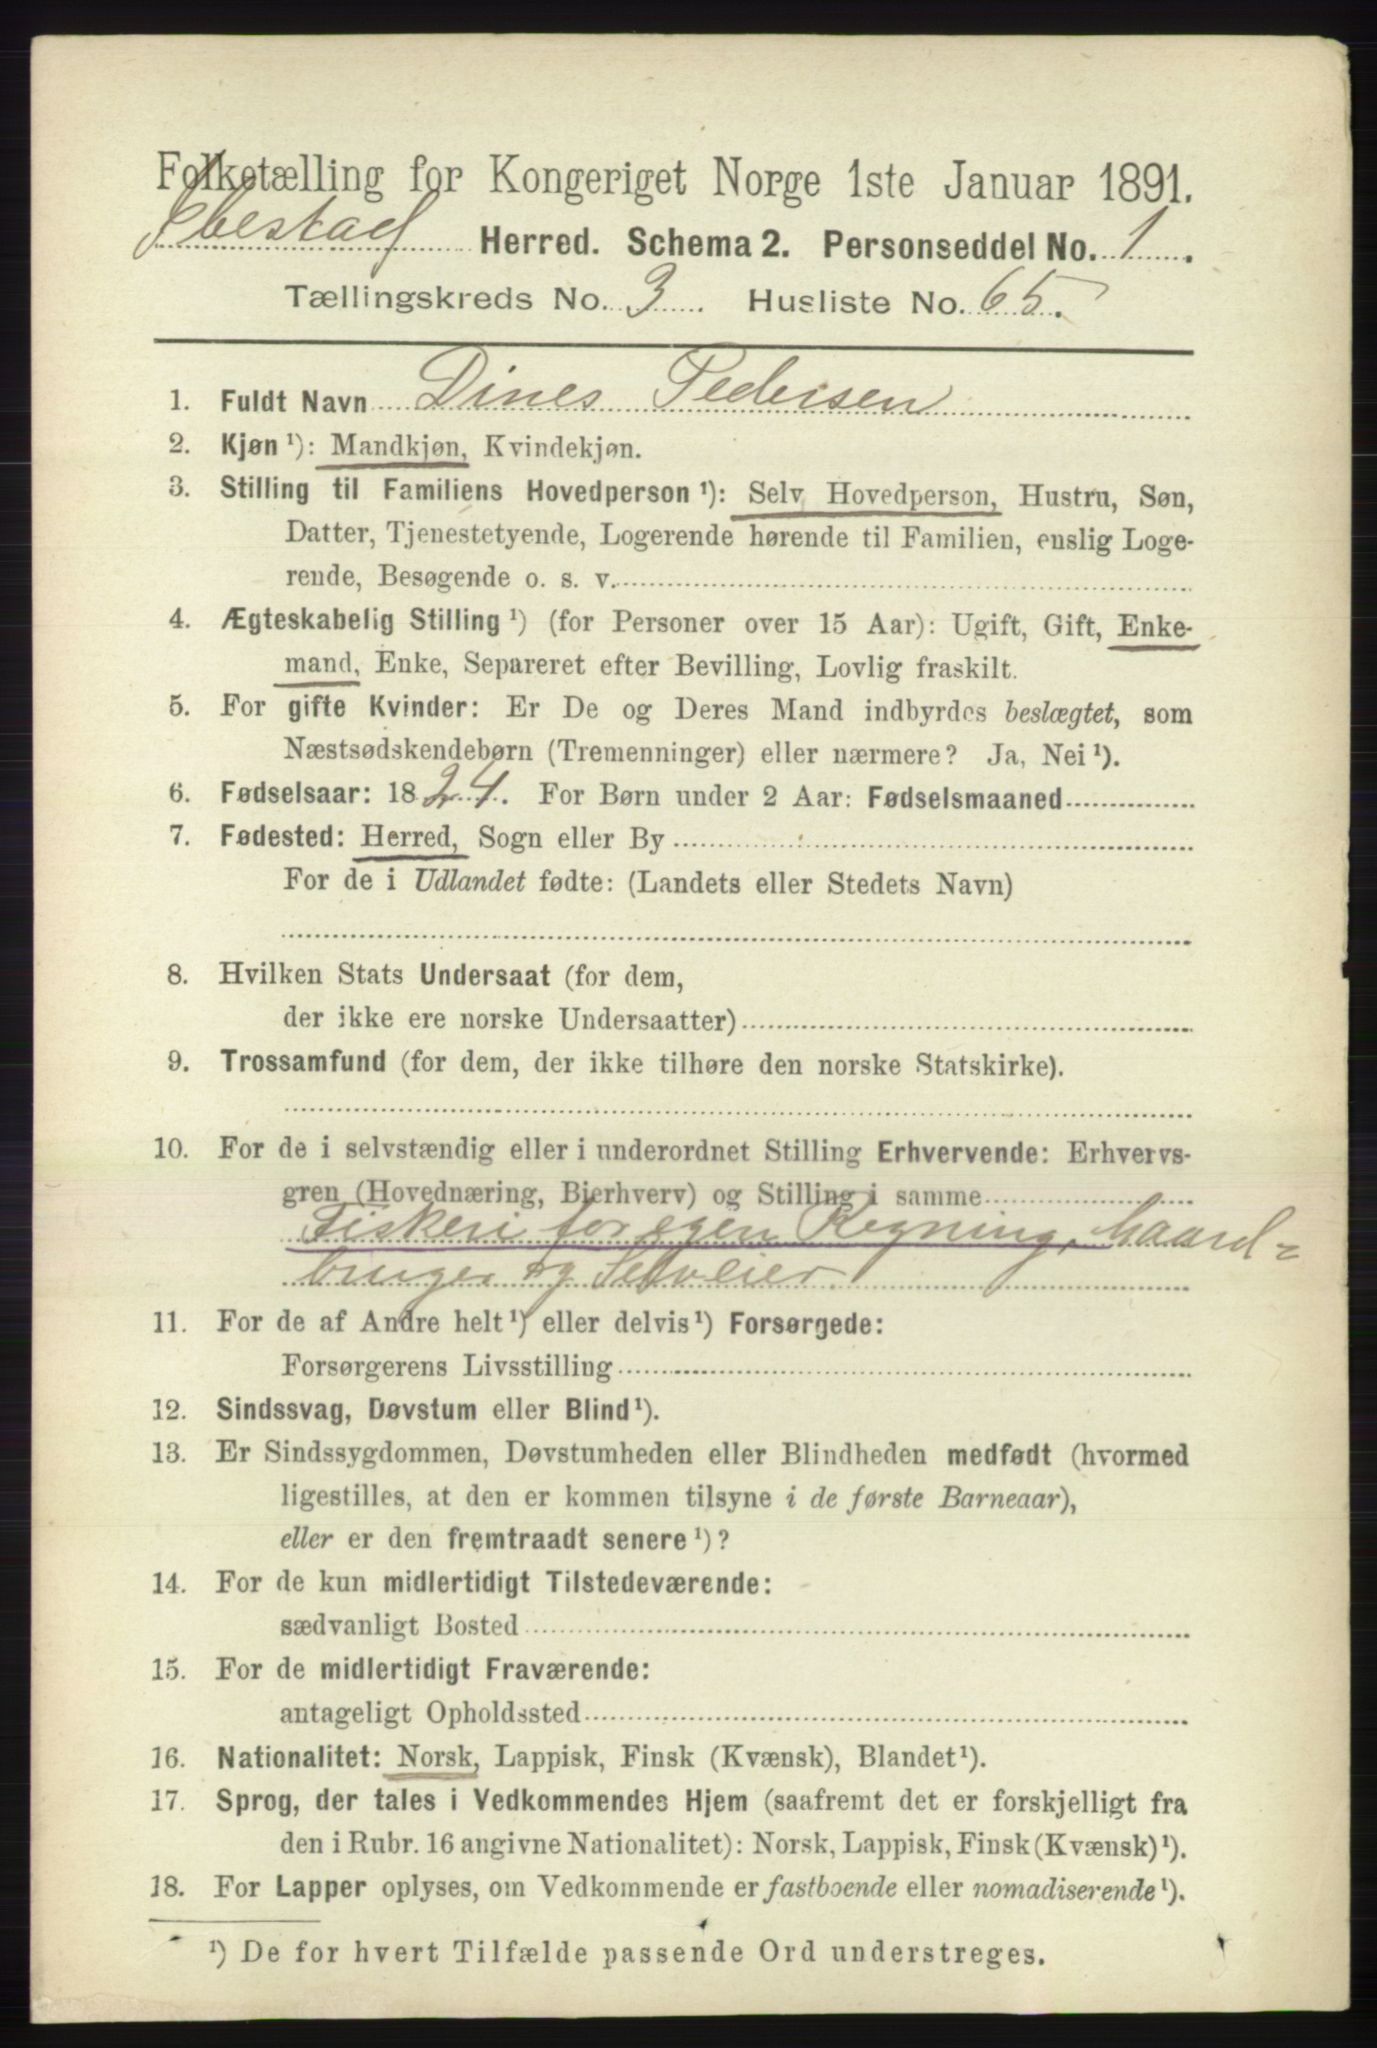 Folketælling for Kongeriget Norge 1ste Januar 1891.
Ibestad Herred. Schema 2. Personseddel No. 1.
Tællingskreds No. 3 Husliste No. 65.
1. Fuldt Navn Dines Pedersen
2. Kjøn ¹): Mandkjøn, Kvindekjøn.
3. Stilling til Familiens Hovedperson ¹): Selv Hovedperson, Hustru, Søn,
Datter, Tjenestetyende, Logerende hørende til Familien, enslig Loge-
rende, Besøgende o. s. v.
4. Ægteskabelig Stilling ¹) (for Personer over 15 Aar): Ugift, Gift, Enke-
mand, Enke, Separeret efter Bevilling, Lovlig fraskilt.
5. For gifte Kvinder: Er De og Deres Mand indbyrdes beslægtet, som
Næstsødskendebørn (Tremenninger) eller nærmere? Ja, Nei ¹).
6. Fødselsaar: 1824. For Børn under 2 Aar: Fødselsmaaned
7. Fødested: Herred, Sogn eller By
For de i Udlandet fødte: (Landets eller Stedets Navn)
8. Hvilken Stats Undersaat (for dem,
der ikke ere norske Undersaatter)
9. Trossamfund (for dem, der ikke tilhøre den norske Statskirke).
10. For de i selvstændig eller i underordnet Stilling Erhvervende: Erhvervs-
gren (Hovednæring, Bierhverv) og Stilling i samme
Fiskeri for egen Regning, Gaard-
bruger og Selveier
11. For de af Andre helt ¹) eller delvis ¹) Forsørgede:
Forsørgerens Livsstilling
12. Sindssvag, Døvstum eller Blind ¹).
13. Er Sindssygdommen, Døvstumheden eller Blindheden medfødt (hvormed
ligestilles, at den er kommen tilsyne i de første Barneaar),
eller er den fremtraadt senere ¹)?
14. For de kun midlertidigt Tilstedeværende:
sædvanligt Bosted
15. For de midlertidigt Fraværende:
antageligt Opholdssted
16. Nationalitet: Norsk, Lappisk, Finsk (Kvænsk), Blandet ¹).
17. Sprog, der tales i Vedkommendes Hjem (saafremt det er forskjelligt fra
den i Rubr. 16 angivne Nationalitet): Norsk, Lappisk, Finsk (Kvænsk) ¹).
18. For Lapper oplyses, om Vedkommende er fastboende eller nomadiserende ¹).
¹) De for hvert Tilfælde passende Ord understreges.